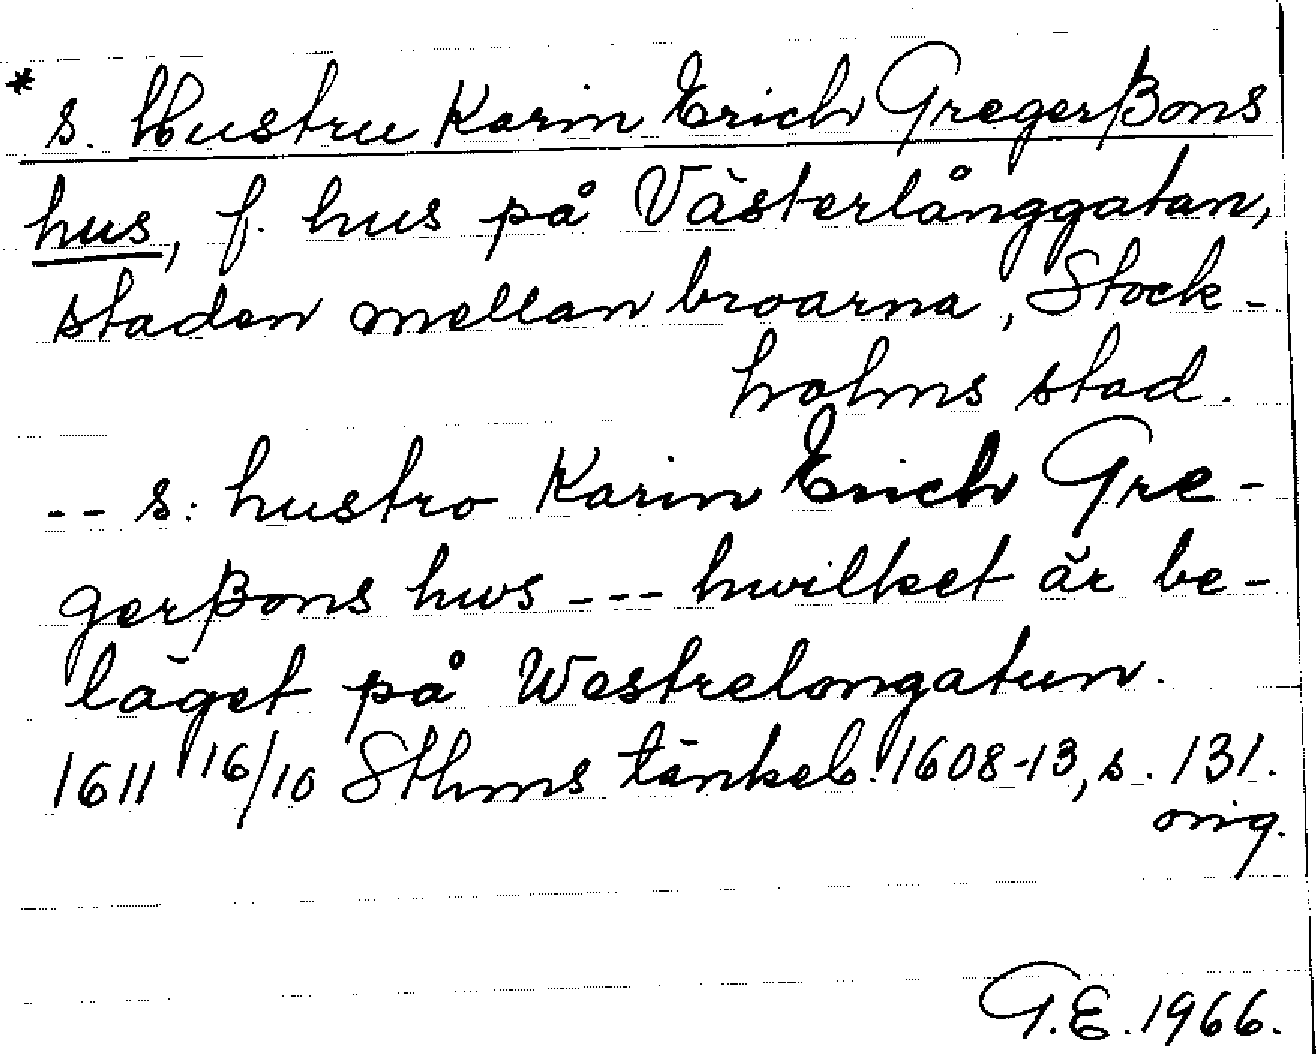 * s. Hustru Karin Erich Gregerßons
hus, f. hus på Västerlånggatan,
staden mellan broarna, Stock-
holms stad.
-- s: hustro Karin Erich Gre-
gerßons hws --- hwilket är be-
läget på Westrelongatun.
1611 16/10 Sthms tänkeb. 1608-13, s. 131.
orig.
G.E. 1966.